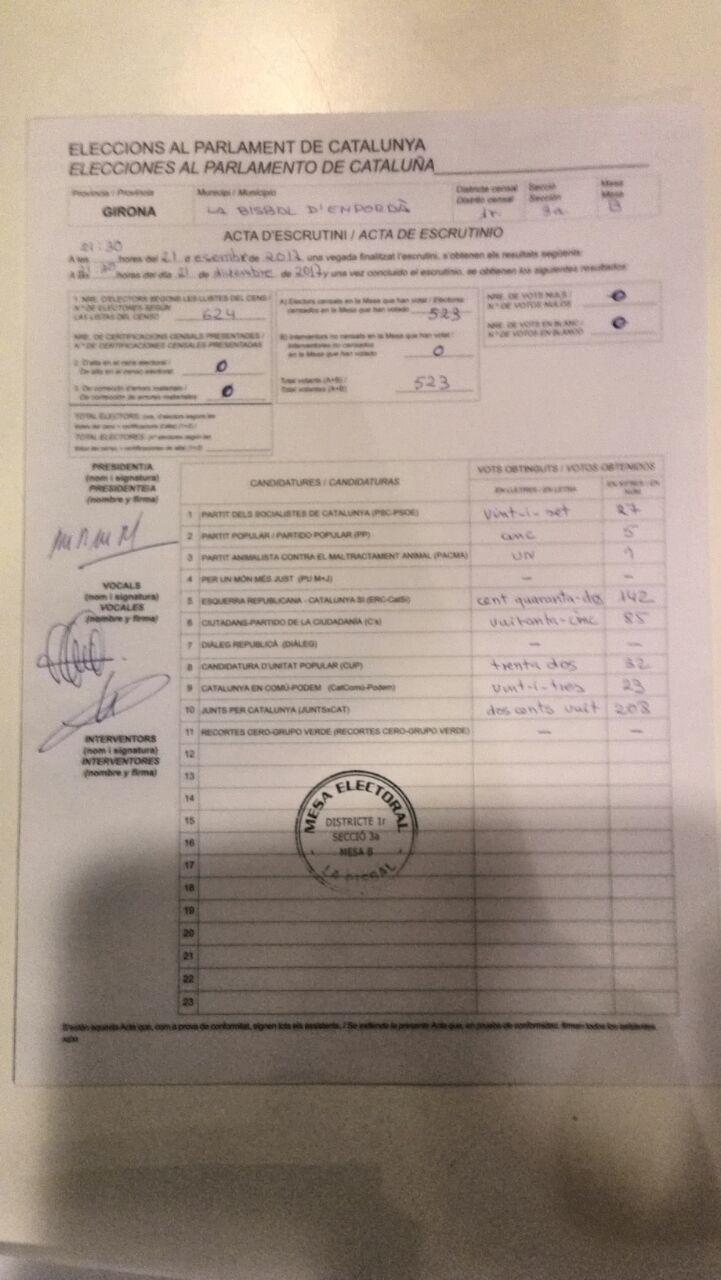 ELECCIONS AL PARLAMENT DE CATALUNYA
ELECCIONES AL PARLAMENTO DE CATALUÑA
Província / Provincia Municipi / Municipio Districte censal Secció Mesa
Distrito censal Sección Mesa
GIRONA LA BISBAL D'EMPORDÀ 1r. 3a B
ACTA D'ESCRUTINI / ACTA DE ESCRUTINIO
21:30
A les hores del 21 desembre de 2017, una vegada finalitzat l'escrutini, s'obtenen els resultats següents:
A las hores del día 21 de diciembre de 2017 y una vez concluido el escrutinio, se obtienen los siguientes resultados:
1. NRE. D'ELECTORS SEGONS LES LLISTES DEL CENS /
N.º DE ELECTORES SEGÚN
LAS LISTAS DEL CENSO 624
NRE. DE CERTIFICACIONS CENSALS PRESENTADES /
N.º DE CERTIFICACIONES CENSALES PRESENTADAS
2. D'alta en el cens electoral /
De alta en el censo electoral 0
3. De correcció d'errors materials /
De corrección de errores materiales 0
TOTAL ELECTORS
TOTAL ELECTORES
A) Electors censats en la Mesa que han votat / Electores
censados en la Mesa que han votado 523
B) Interventors no censats en la Mesa que han votat /
Interventores no censados
en la Mesa que han votado 0
Total votants (A+B) /
Total votantes (A+B) 523
NRE. DE VOTS NULS /
N.º DE VOTOS NULOS 0
NRE. DE VOTS EN BLANC /
N.º DE VOTOS EN BLANCO 0
PRESIDENT/A
(nom i signatura)
PRESIDENTE/A
(nombre y firma)
VOCALS
(nom i signatura)
VOCALES
(nombre y firma)
INTERVENTORS
(nom i signatura)
INTERVENTORES
(nombre y firma)
CANDIDATURES / CANDIDATURAS VOTS OBTINGUTS / VOTOS OBTENIDOS
EN LLETRES / EN LETRA EN XIFRES / EN NÚM.
1 PARTIT DELS SOCIALISTES DE CATALUNYA (PSC-PSOE) Vint-i-set 27
2 PARTIT POPULAR / PARTIDO POPULAR (PP) cinc 5
3 PARTIT ANIMALISTA CONTRA EL MALTRACTAMENT ANIMAL (PACMA) UN 1
4 PER UN MÓN MÉS JUST (PU M+J) - -
5 ESQUERRA REPUBLICANA - CATALUNYA SÍ (ERC-CatSí) cent quaranta-dos 142
6 CIUTADANS-PARTIDO DE LA CIUDADANÍA (C's) vuitanta-cinc 85
7 DIÀLEG REPUBLICÀ (DIÀLEG) - -
8 CANDIDATURA D'UNITAT POPULAR (CUP) trenta dos 32
9 CATALUNYA EN COMÚ-PODEM (CatComú-Podem) Vint-i-tres 23
10 JUNTS PER CATALUNYA (JUNTSxCAT) dos cents vuit 208
11 RECORTES CERO-GRUPO VERDE (RECORTES CERO-GRUPO VERDE) - -
12
13
14
15
16
17
18
19
20
21
22
23
MESA ELECTORAL
DISTRICTE 1r
SECCIÓ 3a
MESA B
LA BISBAL
S'estén aquesta Acta que, com a prova de conformitat, signen tots els assistents. / Se extiende la presente Acta que, en prueba de conformidad, firman todos los asistentes